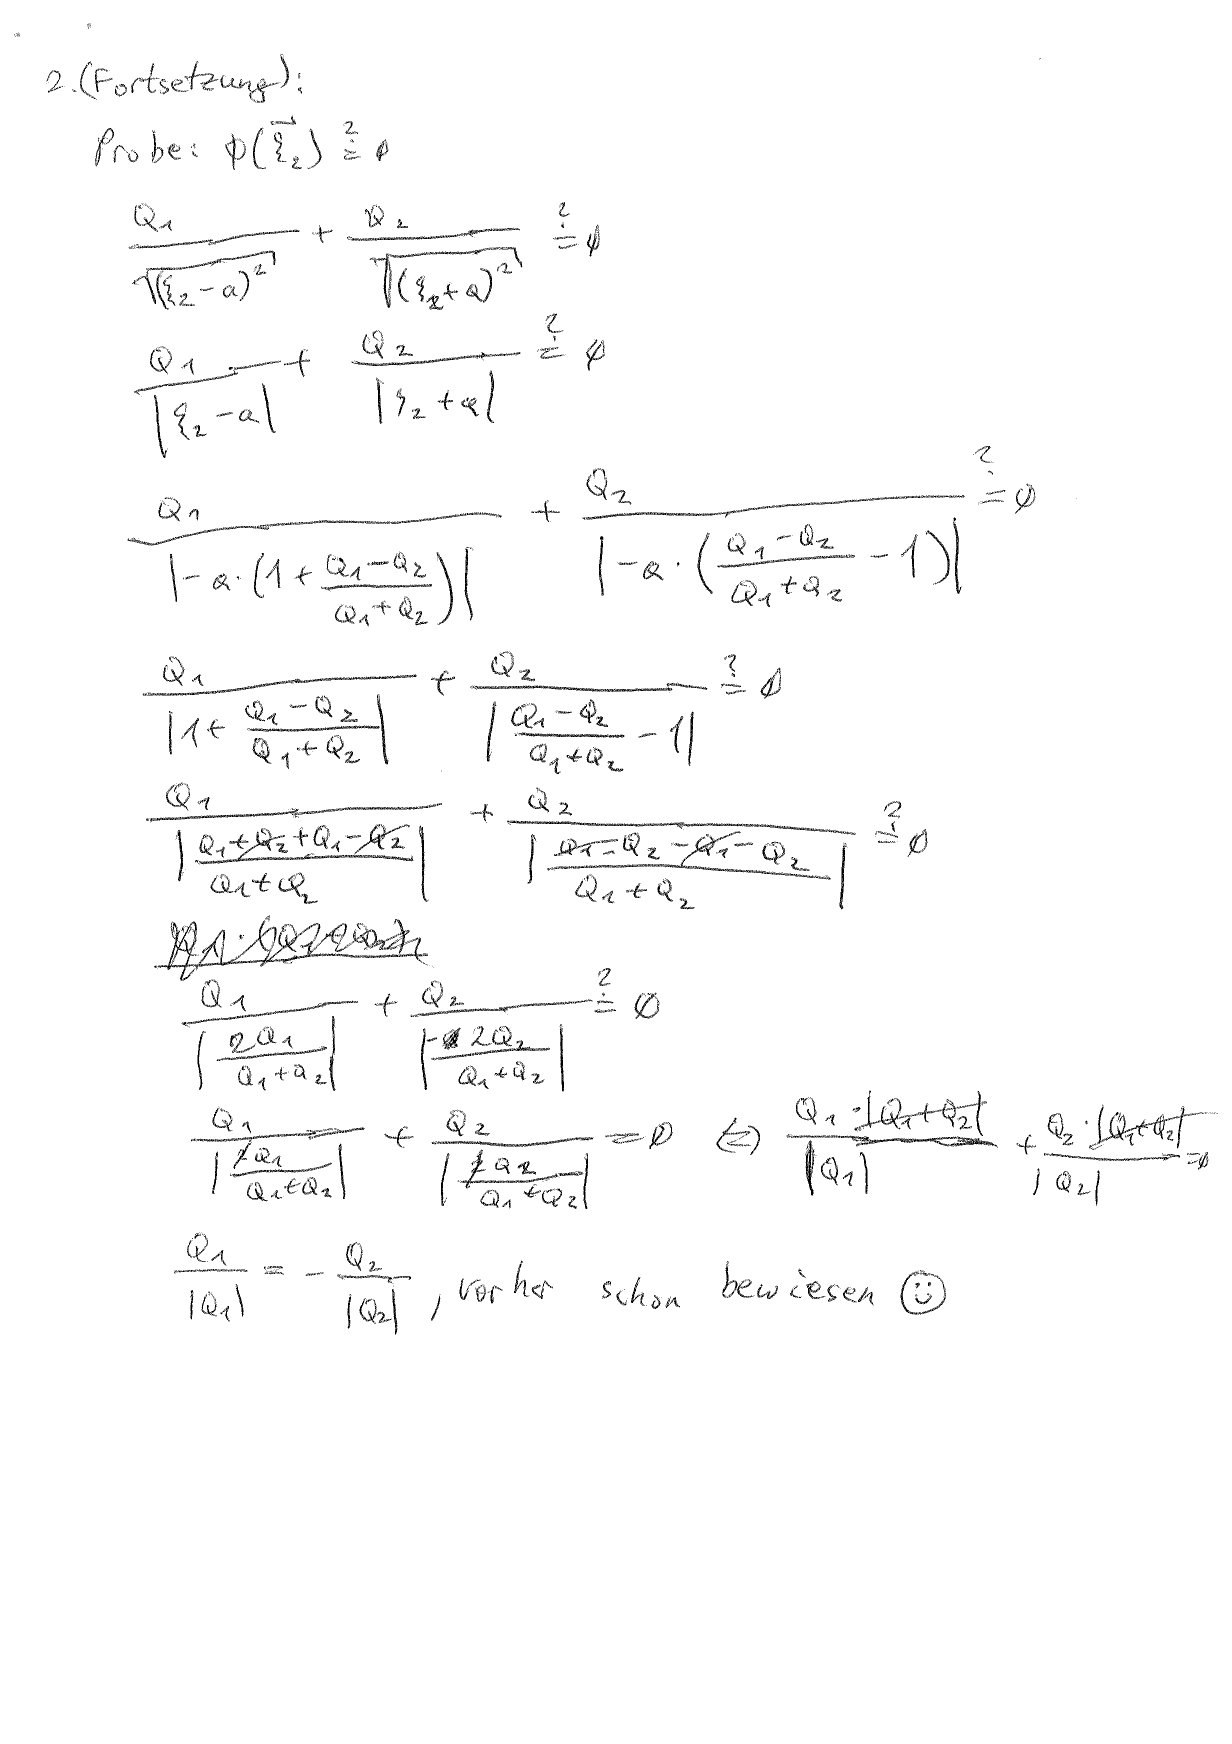 2. (Fortsetzung):
Probe: ϕ(ξ⃗₂) ≟ 0
Q₁/√((ξ₂-a)²) + Q₂/√((ξ₂+a)²) ≟ 0
Q₁/|ξ₂-a| + Q₂/|ξ₂+a| ≟ 0
Q₁/|-a·(1+(Q₁-Q₂)/(Q₁+Q₂))| + Q₂/|-a·((Q₁-Q₂)/(Q₁+Q₂)-1)| ≟ 0
Q₁/|1+(Q₁-Q₂)/(Q₁+Q₂)| + Q₂/|(Q₁-Q₂)/(Q₁+Q₂)-1| ≟ 0
Q₁/|(Q₁+Q₂+Q₁-Q₂)/(Q₁+Q₂)| + Q₂/|(Q₁-Q₂-Q₁-Q₂)/(Q₁+Q₂)| ≟ 0
Q₁/|2Q₁/(Q₁+Q₂)| + Q₂/|-2Q₂/(Q₁+Q₂)| ≟ 0
Q₁/|2Q₁/(Q₁+Q₂)| + Q₂/|2Q₂/(Q₁+Q₂)| = 0 ⇔ Q₁·|Q₁+Q₂|/|Q₁| + Q₂·|Q₁+Q₂|/|Q₂| = 0
Q₁/|Q₁| = - Q₂/|Q₂|, vorher schon bewiesen ☺